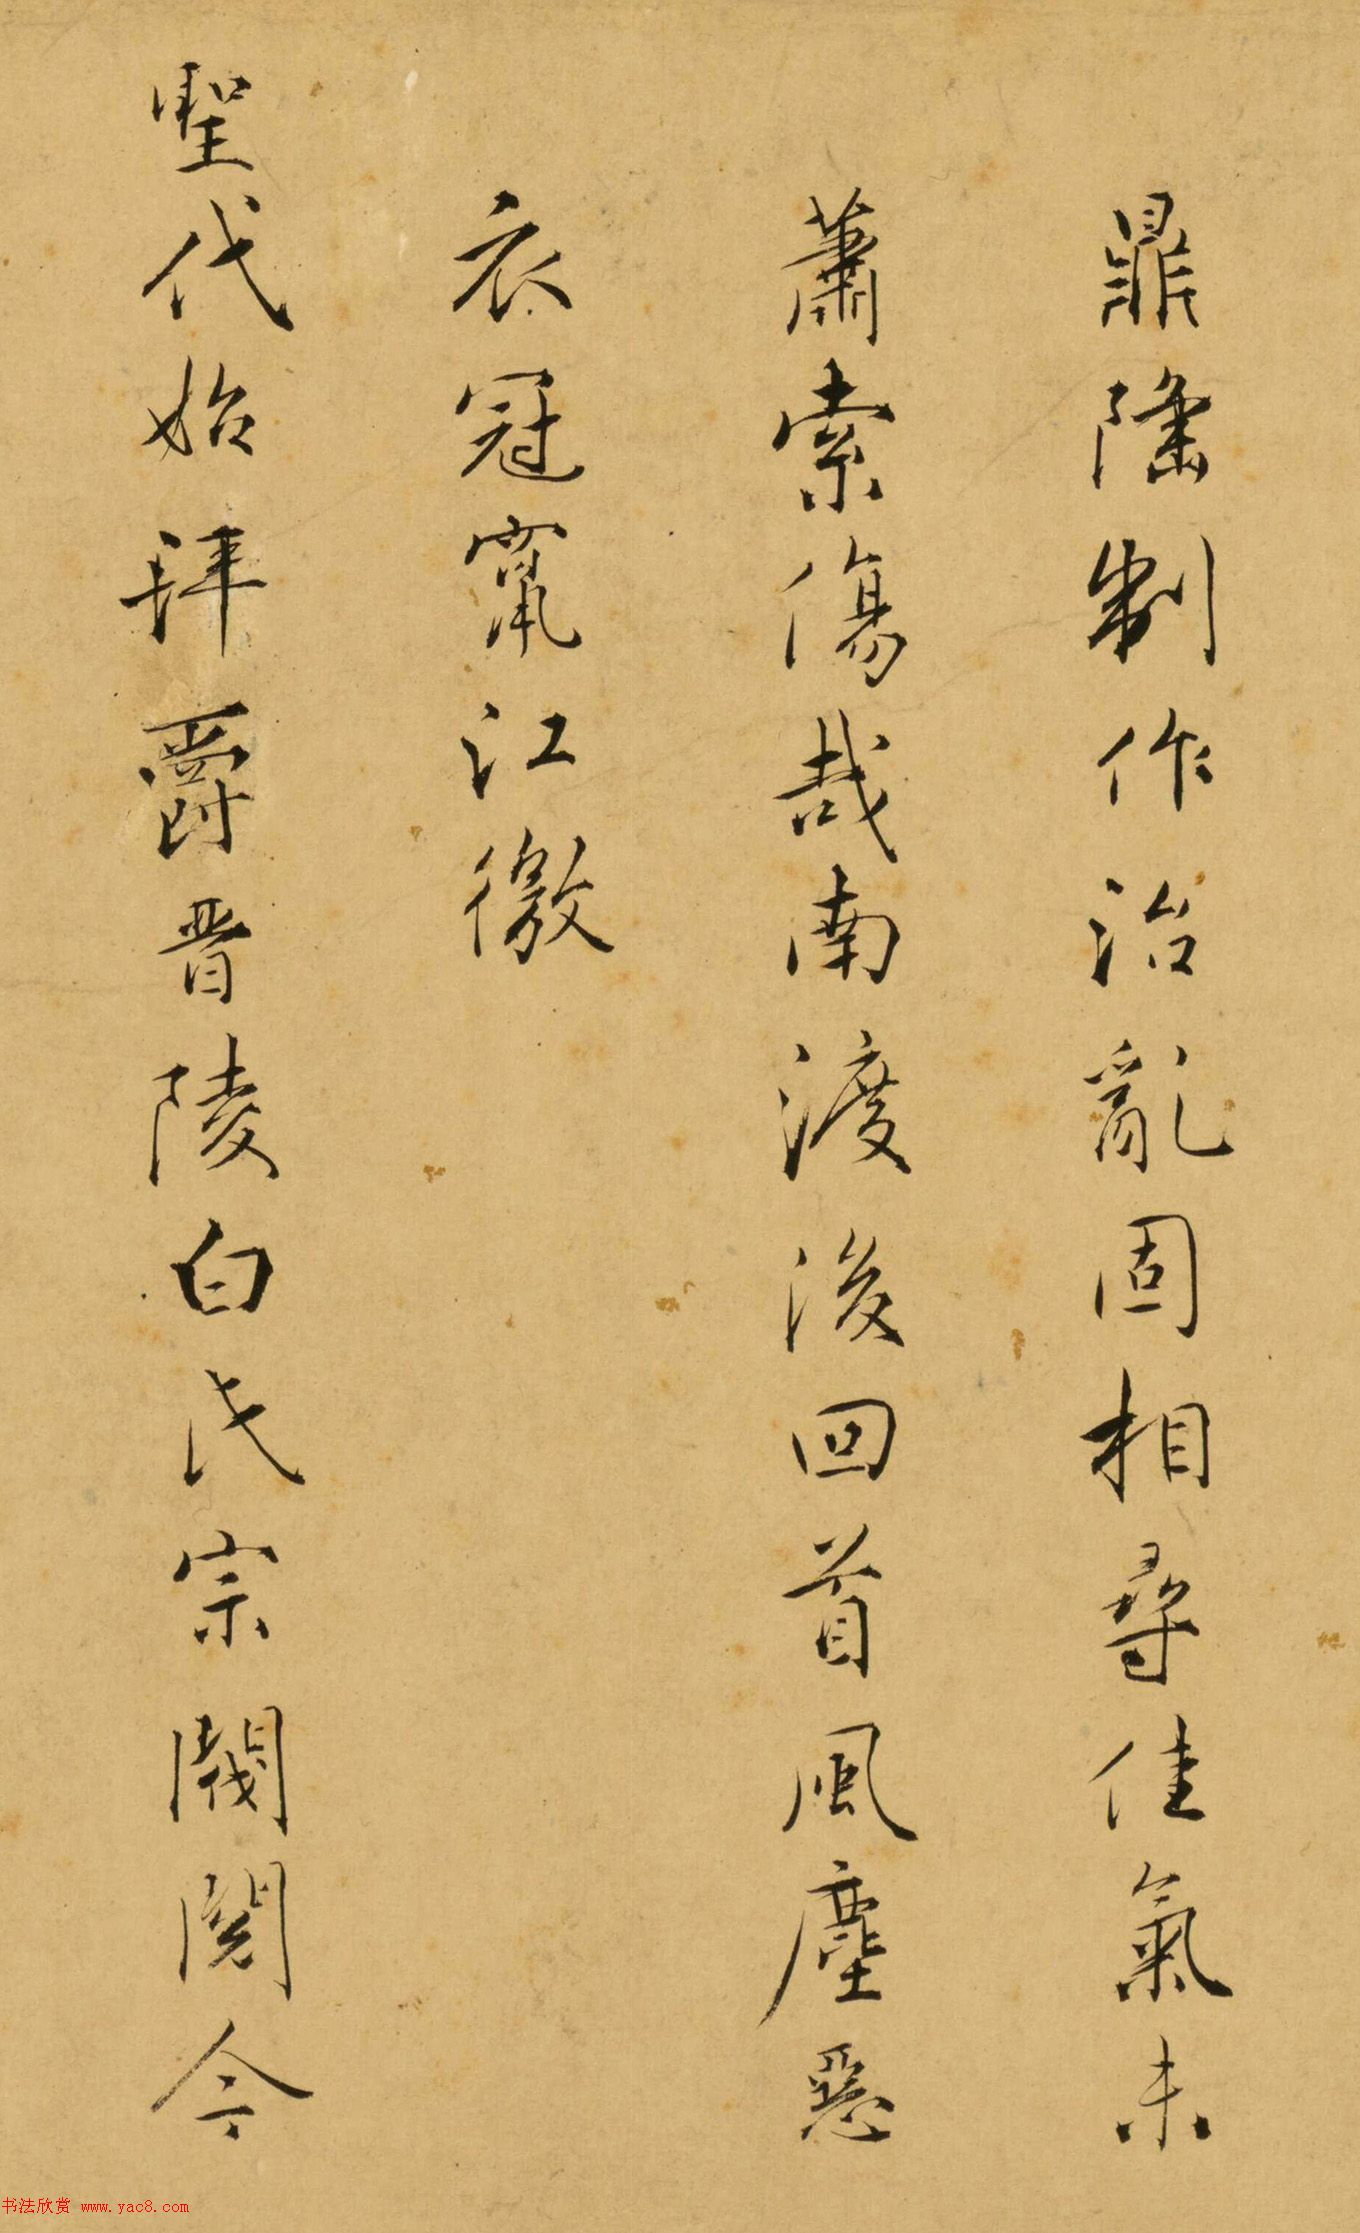 鼎隆制作治亂固相尋佳氣未
蕭索傷哉南渡後回首風塵惡
衣冠竄江徼
聖代始拜爵晋陵白氏宗閥閱今
书法欣赏 www.yac8.com